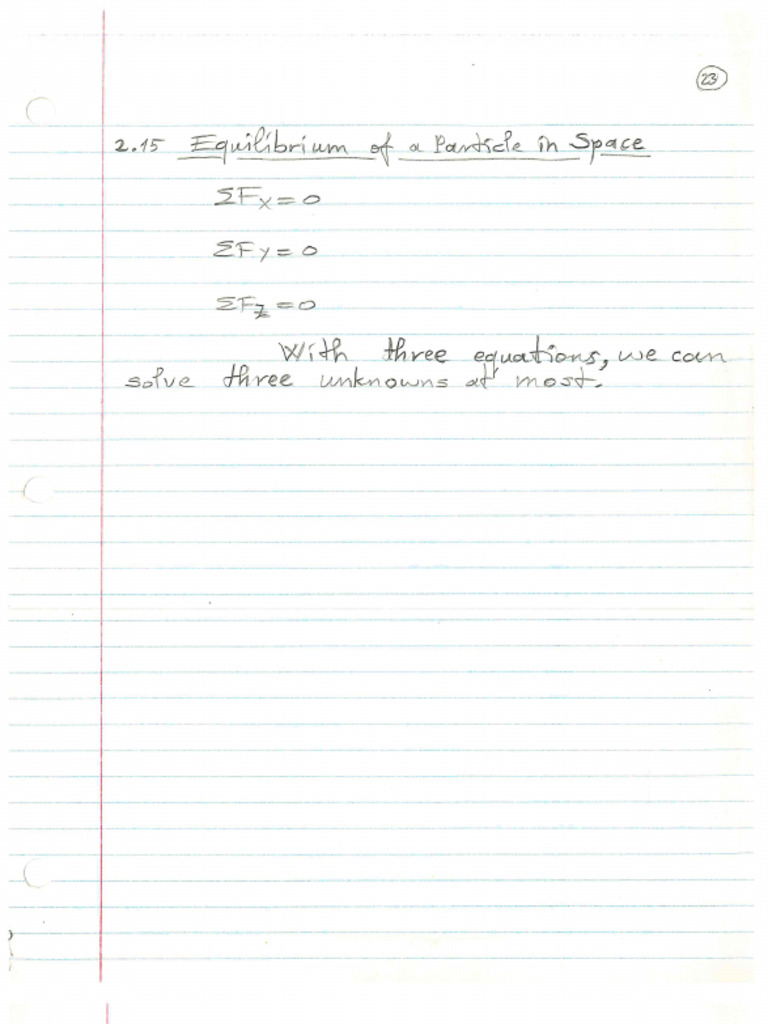 23
2.15 Equilibrium of a Particle in Space
ΣFx = 0
ΣFy = 0
ΣFz = 0
With three equations, we can
solve three unknowns at most.